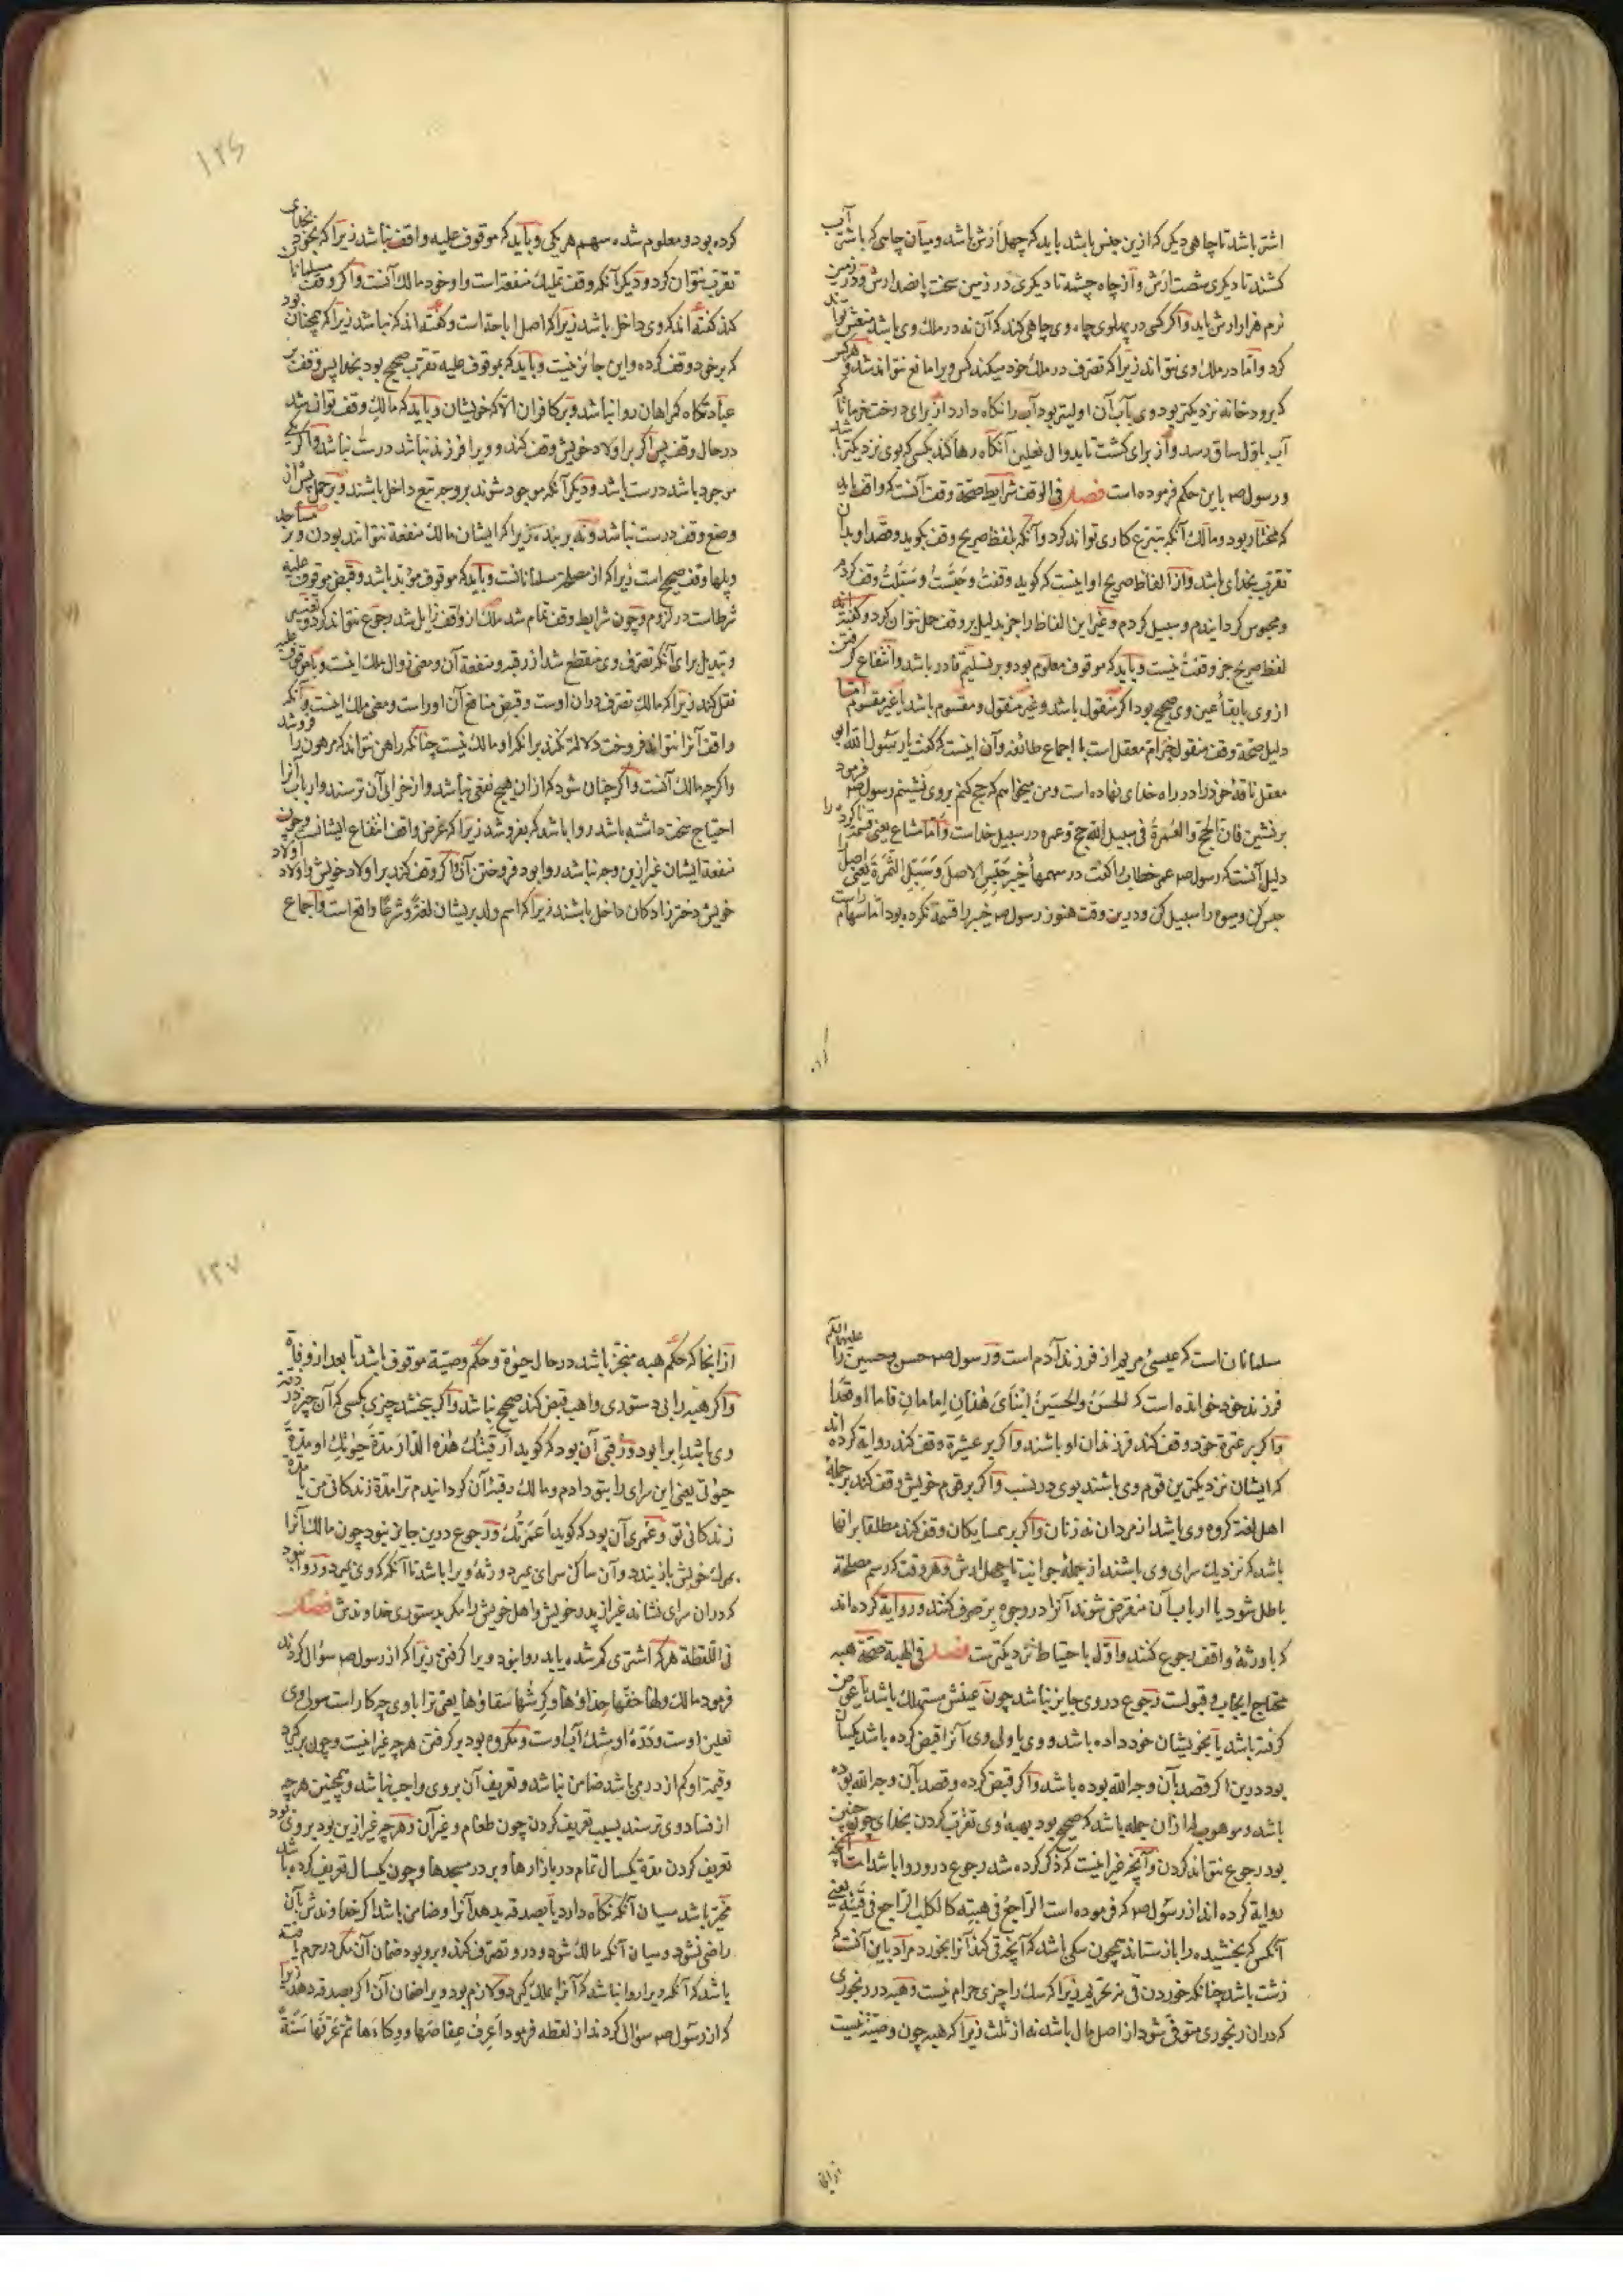 اشتر باشد تا چاهی دیگر که ازین جنس باشد باید که چهل ارش باشد و میان چاهی که باشتر آب
کشند تا دیگری شصت ارش و از چاه چشمه تا دیگری در زمین سخت پانصد ارش و در زمین
نرم هزار ارش باید و اگر کسی در پهلوی چاه وی چاهی کند که آن نه در ملک وی باشد منعش تواند
کرد و اما در ملک وی نتواند زیرا که تصرف در ملک خود میکند کس ویرا مانع نتواند شد و هر کس
که برودخانه نزدیکتر بود وی بآب آن اولیتر بود آب را نگاه دارد از برای درخت خرما تا که
آب باول ساق رسد و از برای کشت تا بدوال نعلین آنگاه رها کند بکسی که بوی نزدیکتر باشد
و رسول صم باین حکم فرموده است فصل فی الوقف شرایط صحة وقف آنست که واقف باید
که مختار بود و مالک آنکه تبرع کاری تواند کرد و آنکه بلفظ صریح وقف بگوید و قصد او بدان
تقرب بخدای باشد و از الفاظ صریح او اینست که گوید وقفت و حبست و سبلت وقف کردم
و محبوس گردانیدم و سبیل کردم و غیر این الفاظ را جز بدلیل بر وقف حمل نتوان کرد و گفته‌اند
لفظ صریح جز وقفت نیست و باید که موقوف معلوم بود و بر تسلیم قادر باشد و انتفاع گرفتن
از وی بابقاء عین وی صحیح بود اگر منقول باشد و غیر منقول و مقسوم باشد یا غیر مقسوم اما
دلیل صحة وقف منقول خبر ام معقل است با اجماع طائفه و آن اینست که گفت یا رسول الله ابو
معقل ناقهٔ خود را در راه خدای نهاده است و من میخواهم که حج کنم بروی نشینم رسول صم فرمود
برنشین فان الحج والعمرة فی سبیل الله حج و عمره در سبیل خداست و اما مشاع یعنی قسمة ناکرده را
دلیل آنست که رسول صم عمر خطاب را گفت در سهمهای خیبر حبس الاصل و سبل الثمرة یعنی اصل را
حبس کن و میوه را سبیل کن و درین وقت هنوز رسول صم خیبر را قسمة نکرده بود اما سهام راست
کرده بود و معلوم شده سهم هر یکی و باید که موقوف علیه واقف نباشد زیرا که بخود تقرب
تقرب نتوان کرد و دیگر آنکه وقف تملیک منفعة است و او خود مالک آنست و اگر وقف بر مسلمانان
کند گفته‌اند که وی داخل باشد زیرا که اصل اباحة است و گفته‌اند که نباشد زیرا که همچنان بود
که بر خود وقف کرده و این جائز نیست و باید که بموقوف علیه تقرب صحیح بود بخدا پس وقف بر
عبادتگاه گمراهان روا نباشد و بر کافران الا که خویشان و باید که مالک وقف تواند شد
در حال وقف پس اگر بر اولاد خویش وقف کند و ویرا فرزند نباشد درست نباشد و اگر یکی
موجود باشد درست باشد و دیگر آنکه موجود شوند بر وجه تبع داخل باشند و بر حمل پیش از
وضع وقف درست نباشد و نه بر بنده زیرا که ایشان مالک منفعة نتوانند بودن و بر مساجد
و پلها وقف صحیح است زیرا که از مصلحة مسلمانانست و باید که موقوف مؤبد باشد و قبض موقوف علیه
شرط است در لزوم و چون شرایط وقف تمام شد ملک از واقف زایل شد رجوع نتواند کرد و تغییر
و تبدیل برای آنکه تصرف وی منقطع شد از رقبه و منفعة آن و معنی زوال ملک اینست و با موقوف علیه
نقل کند زیرا که مالک تصرف در آن اوست و قبض منافع آن او راست و معنی ملک اینست و آنکه
واقف آنرا نتواند فروخت دلالة نکند بر آنکه او مالک نیست چنانکه راهن نتواند که مرهون را فروشد
و اگر چه مالک آنست و اگر چنان شود که از آن هیچ نفعی نباشد و از خرابی آن ترسند و ارباب آنرا
احتیاج سخت داشته باشد روا باشد که بفروشد زیرا که غرض واقف انتفاع ایشانست و چون
منفعة ایشان غیر ازین وجه نباشد روا بود فروختن آن و اگر وقف کند بر اولاد خویش و اولاد اولاد
خویش دختر زادگان داخل باشند زیرا که اسم ولد بر ایشان لغة و شرعا واقع است و اجماع
سلمانان است که عیسی مریم از فرزند آدم است و رسول صم حسن و حسین را علیهما السلم
فرزند خود خوانده است که الحسن والحسین ابنای هذان امامان قاما او قعدا
و اگر بر عترة خود وقف کند فرزندان او باشند و اگر بر عشیرة وقف کند روایة کرده‌اند
که ایشان نزدیکترین قوم وی باشند بوی در نسب و اگر بر قوم خویش وقف کند بر جملهٔ
اهل لغة گروه وی باشد از مردان نه زنان و اگر بر همسایگان وقف کند مطلقا بر آنها
باشد که نزدیک سرای وی باشند از جملهٔ جوانب تا چهل ارش و هر وقت که رسم مصلحة
باطل شود یا ارباب آن منقرض شوند آنرا در وجوه بر صرف کنند و روایة کرده‌اند
که با ورثهٔ واقف رجوع کنند و اول باحتیاط نزدیکترست فصل فی الهبة صحة هبه
محتاج ایجاب و قبولست رجوع در وی جایز نباشد چون عینش مستهلک باشد یا عوض
گرفته باشد یا بخویشان خود داده باشد و وی یا ولی وی آنرا قبض کرده باشد یکسان
بود درین اگر قصد بآن وجه الله بوده باشد و اگر قبض کرده و قصد بآن وجه الله بوده
باشد و موهوب له از آن جمله باشد که صحیح بود بهبهٔ وی تقرب کردن بخدای چون چنین
بود رجوع نتواند کردن و آنچه غیر اینست که ذکر کرده شد رجوع در و روا باشد اما آنچه
روایة کرده‌اند از رسول صم که فرموده است الراجع فی هبته کالکلب الراجع فی قیئه یعنی
آنکس که بخشیده را باز ستاند همچون سگی باشد که آنچه قی کند آنرا بخورد مراد باین آنست که
زشت باشد چنانکه خوردن قی نه تحریم زیرا که سگ را چیزی حرام نیست و هبه در رنجوری
که در آن رنجوری متوفی شود از اصل مال باشد نه از ثلث زیرا که هبه چون وصیة نیست
از آنجا که حکم هبه منجز باشد در حال حیوة و حکم وصیة موقوف باشد تا بعد از وفاة
و اگر هبه را بی دستوری واهب قبض کند صحیح نباشد و اگر ببخشد چیزی بکسی که آن چیز در ذمة
وی باشد ابرا بود و رقبی آن بود که گوید ارقبتک هذه الدار مدة حیوتک او مدة
حیوتی یعنی این سرای را بتو دادم و مالک رقبهٔ آن گردانیدم ترا مدة زندگانی من یا مدة
زندگانی تو و عمری آن بود که گوید اعمرتک و رجوع درین جایز نبود چون مالک آنرا
بمرگ خویش باز بندد و آن ساکن سرای بمیرد ورثهٔ ویرا باشد تا آنگه که وی بمیرد و روا نبود
که در آن سرای نشاند غیر از پدر خویش و اهل خویش را مگر بدستوری خداوندش فصل
فی اللقطة هر که اشتری گم شده یابد روا نبود ویرا گرفتن زیرا که از رسول صم سؤال کردند
فرمود مالک ولها خفها حذاؤها و کرشها سقاؤها یعنی ترا با وی چه کار است موزهٔ وی
نعلین اوست و شکنبهٔ او مشک آب اوست و مکروه بود بر گرفتن هر چه غیر اینست و چون بر گیرد
و قیمة او کم از درمی باشد ضامن نباشد و تعریف آن بر وی واجب نباشد و همچنین هر چه
از فساد وی ترسند بسبب تعریف کردن چون طعام و غیر آن و هر چه غیر ازین بود بر وی بود
تعریف کردن مدة یکسال تمام در بازارها و بر در مسجدها و چون یکسال تعریف کرده باشد
مخیر باشد میان آنکه نگاه دارد یا بصدقه بدهد آنرا و ضامن باشد اگر خداوندش بآن
راضی نشود و میان آنکه مالک شود و در و تصرف کند و برو بود ضمان آن مگر در حرم یافته
باشد که آنگه ویرا روا نباشد که آنرا بملک گیرد و لازم بود ویرا ضمان آن اگر بصدقه دهد زیرا
که از رسول صم سؤال کردند از لقطه فرمود اعرف عفاصها و وکاءها ثم عرفها سنة